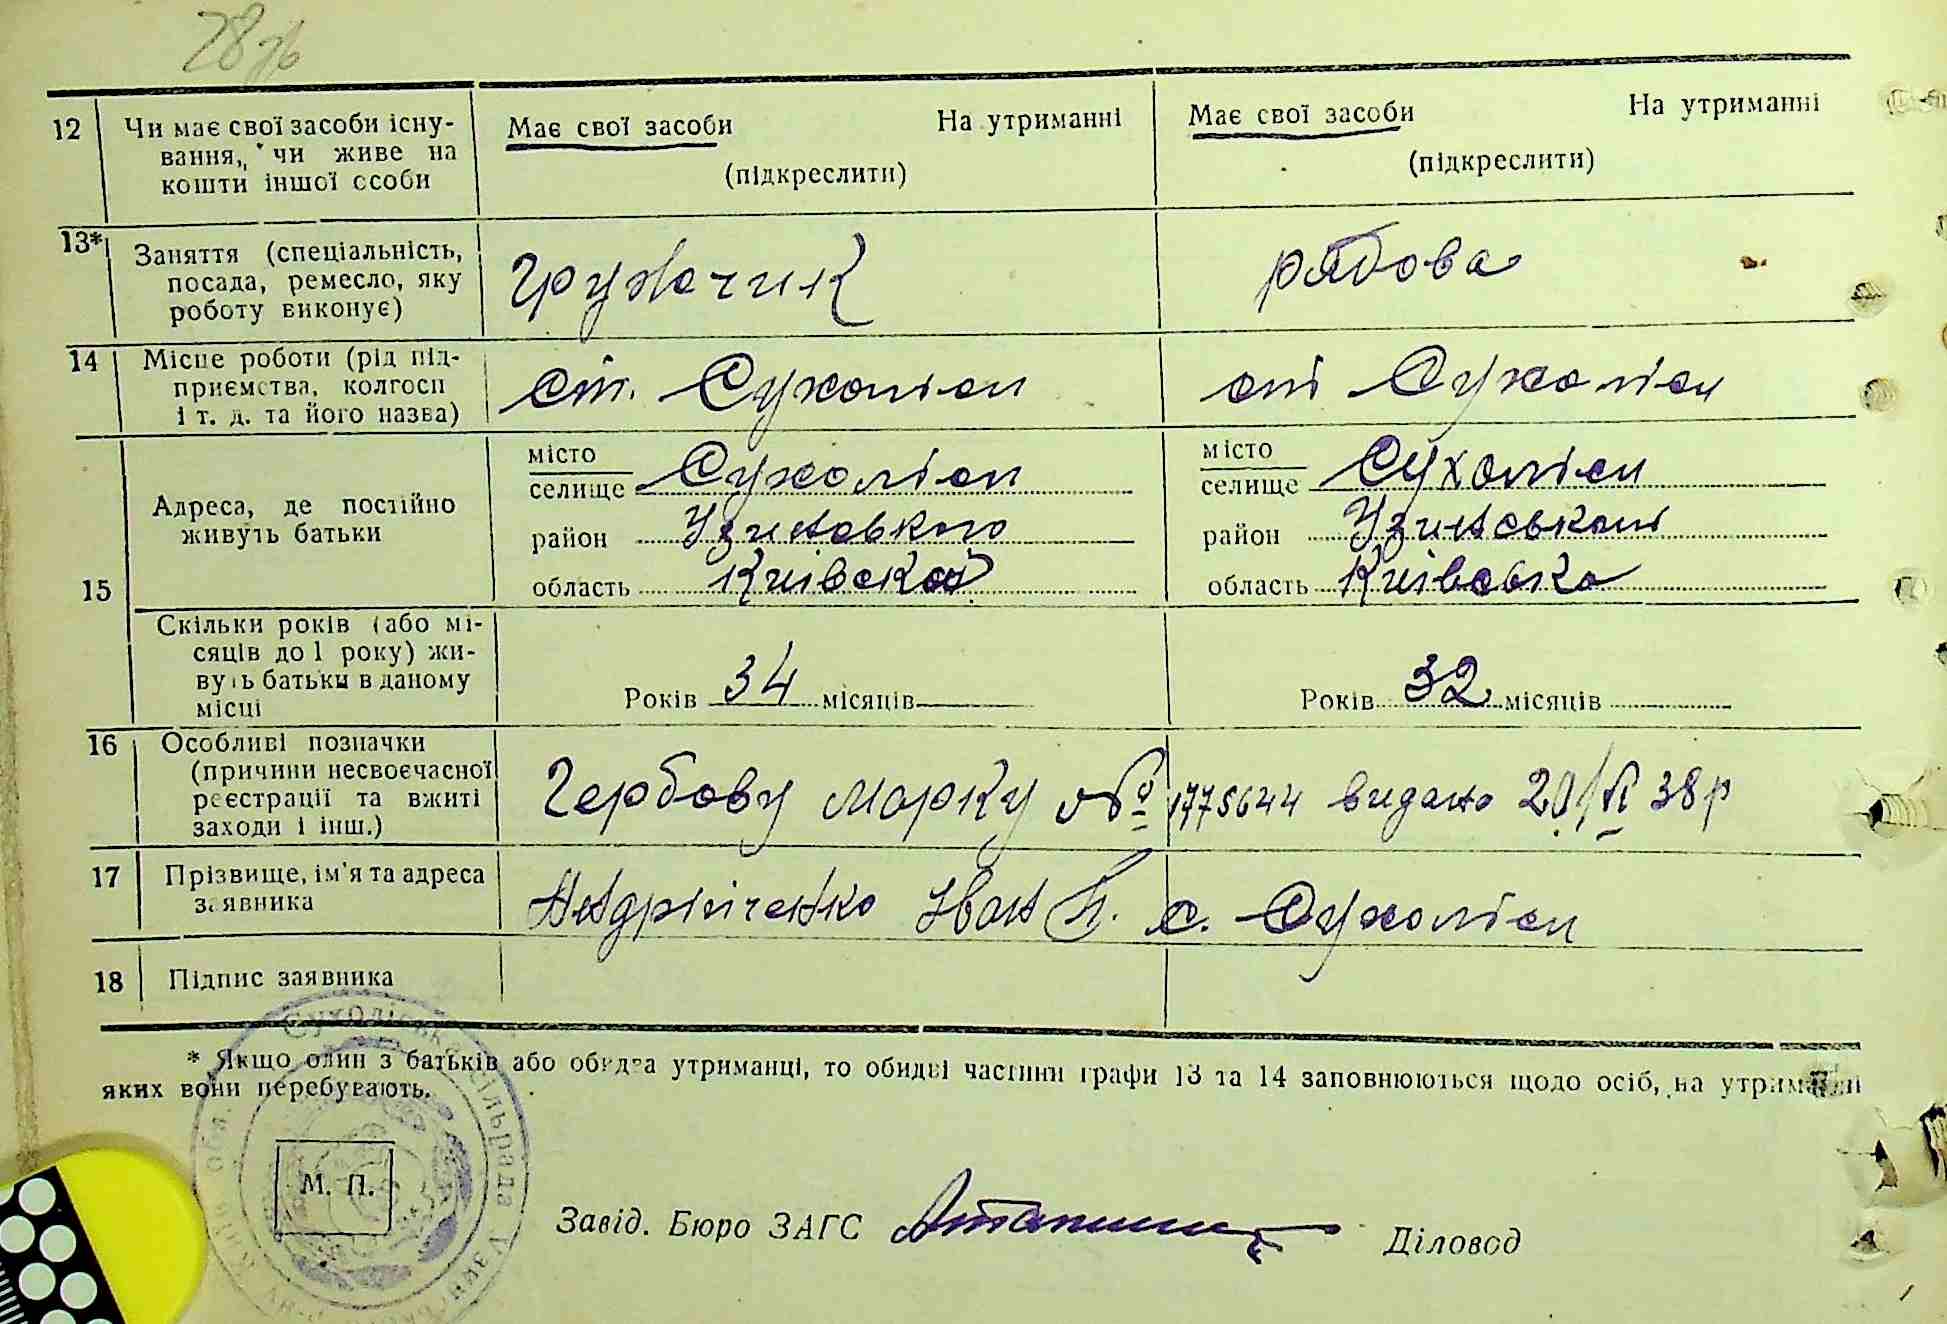 28зв
12 Чи має свої засоби існу-
вання, чи живе на
кошти іншої особи
Має свої засоби На утриманні
(підкреслити)
Має свої засоби На утриманні
(підкреслити)
13* Заняття (спеціальність,
посада, ремесло, яку
роботу виконує)
Грузчик
рядова
14 Місце роботи (рід під-
приємства, колгосп
і т. д. та його назва)
ст. Сухоліси
ст Сухоліси
15
Адреса, де постійно
живуть батьки
місто
селище Сухоліси
район Узинського
область Київской
місто
селище Сухоліси
район Узинський
область Київська
15
Скільки років (або мі-
сяців до 1 року) жи-
вуть батьки в даному
місці
Років 34 місяців
Років 32 місяців
16 Особливі позначки
(причини несвоєчасної
реєстрації та вжиті
заходи і інш.)
Гербову марку № 1775644 видано 20/VI 38р
17 Прізвище, ім'я та адреса
заявника
Андрійченко Іван П. с. Сухоліси
18 Підпис заявника
* Якщо один з батьків або обидва утриманці, то обидві частини графи 13 та 14 заповнюються щодо осіб, на утриманні
яких вони перебувають.
Сухоліська сільрада
М. П.
Завід. Бюро ЗАГС Діловод